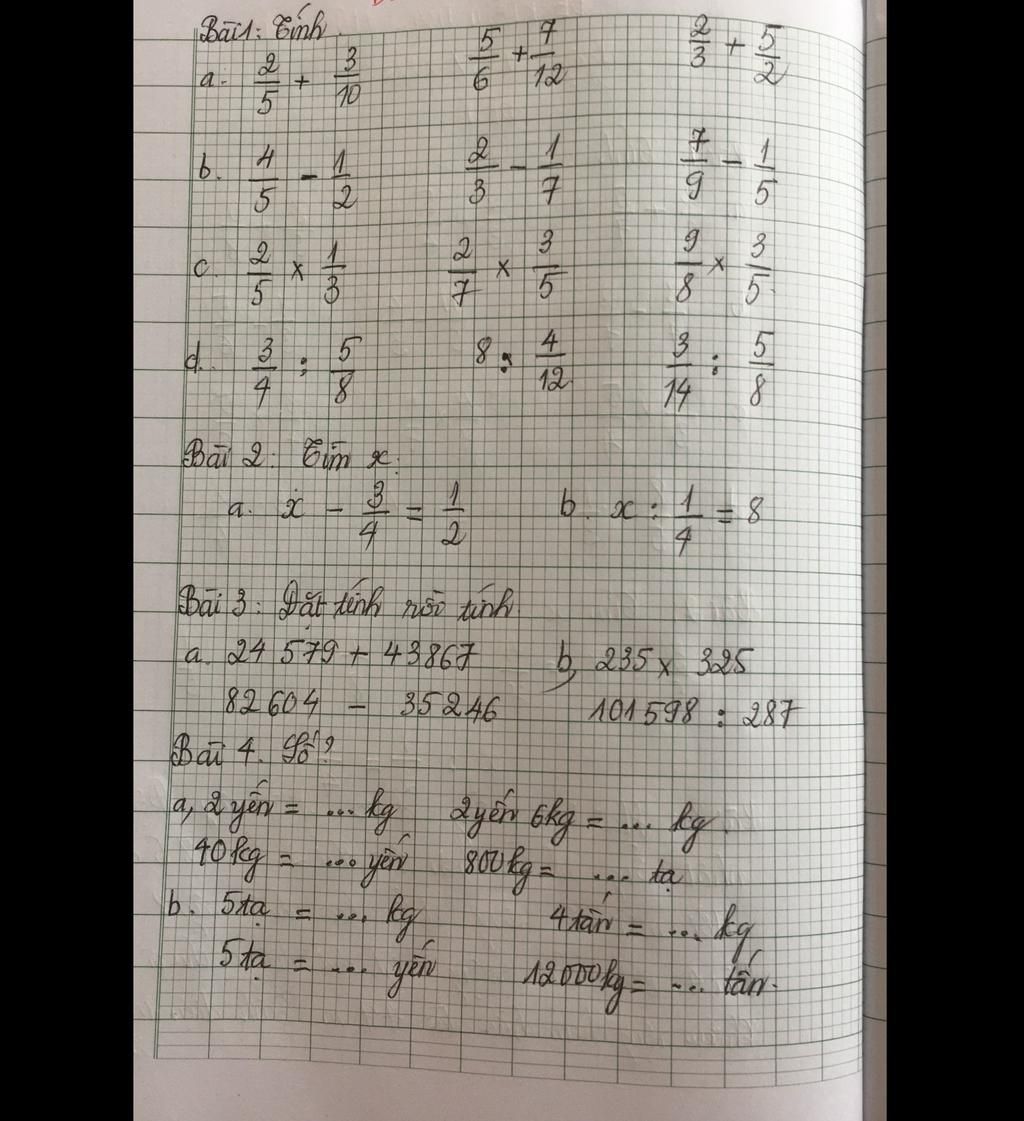 Bài 1: Tính.
a. 2/5 + 3/10 5/6 + 7/12 2/3 + 5/2
b. 4/5 - 1/2 2/3 - 1/7 7/9 - 1/5
c. 2/5 x 1/3 2/7 x 3/5 9/8 x 3/5
d. 3/4 : 5/8 8 : 4/12 3/14 : 5/8
Bài 2: Tìm x:
a. x - 3/4 = 1/2 b. x : 1/4 = 8
Bài 3: Đặt tính rồi tính
a. 24 579 + 43867 b, 235 x 325
82604 - 35246 101598 : 287
Bài 4. Số?
a, 2 yến = ... kg 2yến 6kg = ... kg.
40kg = ... yến 800kg = ... tạ
b. 5tạ = ... kg 4tấn = ... kg
5tạ = ... yến 12000kg = ... tấn.